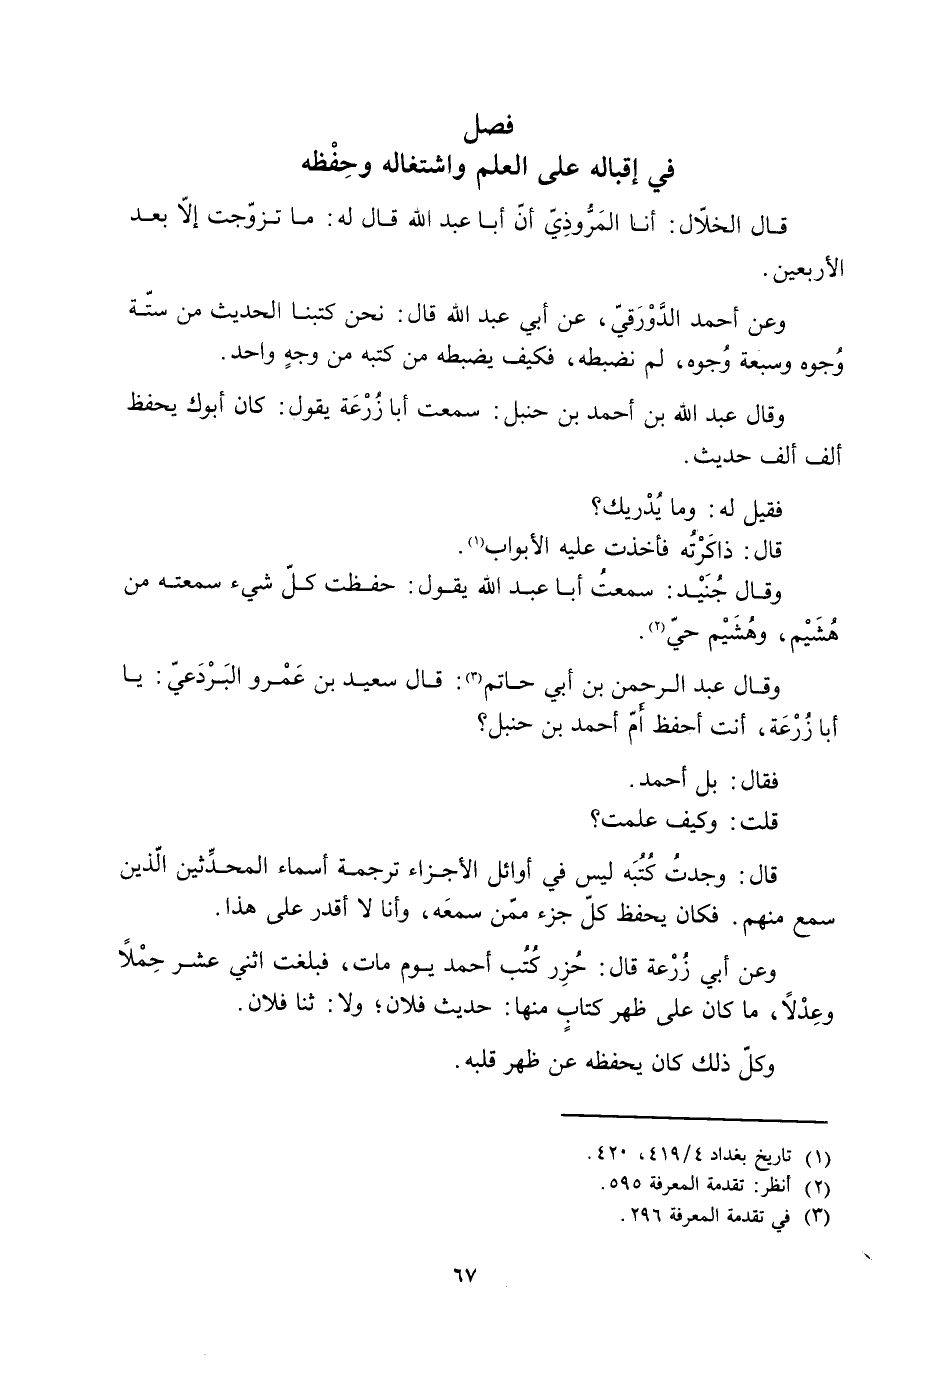 فصل
في إقباله على العلم واشتغاله وحِفْظه
قال الخلّال: أنا المَرُّوذِيّ أنّ أبا عبد الله قال له: ما تزوّجت إلّا بعد
الأربعين.
وعن أحمد الدَّوْرَقيّ، عن أبي عبد الله قال: نحن كتبنا الحديث من ستّة
وُجوه وسبعة وُجوه، لم نضبطه، فكيف يضبطه من كتبه من وجهٍ واحد.
وقال عبد الله بن أحمد بن حنبل: سمعت أبا زُرْعَة يقول: كان أبوك يحفظ
ألف ألف حديث.
فقيل له: وما يُدْريك؟
قال: ذاكَرْتُه فأخذت عليه الأبواب(١).
وقال جُنَيْد: سمعتُ أبا عبد الله يقول: حفظت كلّ شيء سمعته من
هُشَيْم، وهُشَيْم حيّ(٢).
وقال عبد الرحمن بن أبي حاتم(٣): قال سعيد بن عَمْرو البَرْدَعيّ: يا
أبا زُرْعَة، أنت أحفظ أَمّ أحمد بن حنبل؟
فقال: بل أحمد.
قلت: وكيف علمت؟
قال: وجدتُ كُتُبَه ليس في أوائل الأجزاء ترجمة أسماء المحدِّثين الّذين
سمع منهم. فكان يحفظ كلّ جزء ممّن سمعَه، وأنا لا أقدر على هذا.
وعن أبي زُرْعة قال: حُزِر كُتُب أحمد يوم مات، فبلغت اثني عشر حِمْلاً
وعِدْلاً، ما كان على ظهر كتابٍ منها: حديث فلان؛ ولا: ثنا فلان.
وكلّ ذلك كان يحفظه عن ظهر قلبه.
(١) تاريخ بغداد ٤/٤١٩، ٤٢٠.
(٢) أنظر: تقدمة المعرفة ٥٩٥.
(٣) في تقدمة المعرفة ٢٩٦.
٦٧